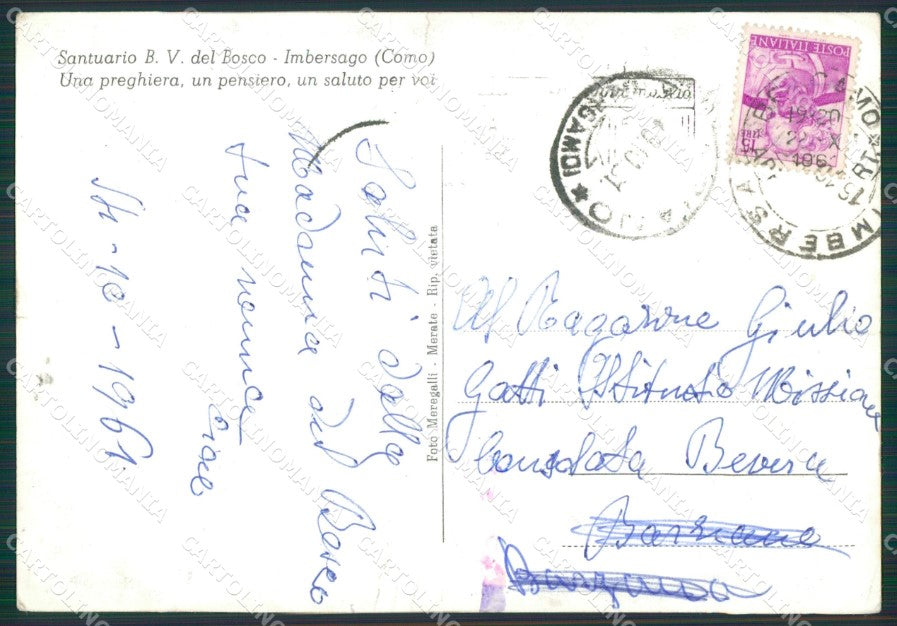 Santuario B. V. del Bosco - Imbersago (Como)
Una preghiera, un pensiero, un saluto per voi
Saluti dalla
Madonna del Bosco
tua nonna
Ciao
10-1961
Foto Meregalli - Merate - Rip. vietata
POSTE ITALIANE
LIRE 15
Al Ragazzine Giulio
Gatti Istituto Missione
Consolata Bevera
Barzana
CARTOLINOMANIA